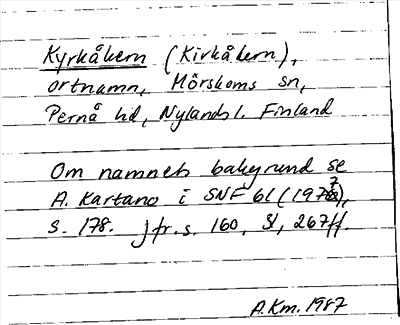 Kyrkåkern (Kirkåkern),
ortnamn, Mörskoms sn,
Pernå hd, Nylands l. Finland
Om namnets bakgrund se
A. Kartano i SNF 61 (1973),
s. 178. jfr. s. 160, 81, 267ff.
A.Km. 1987